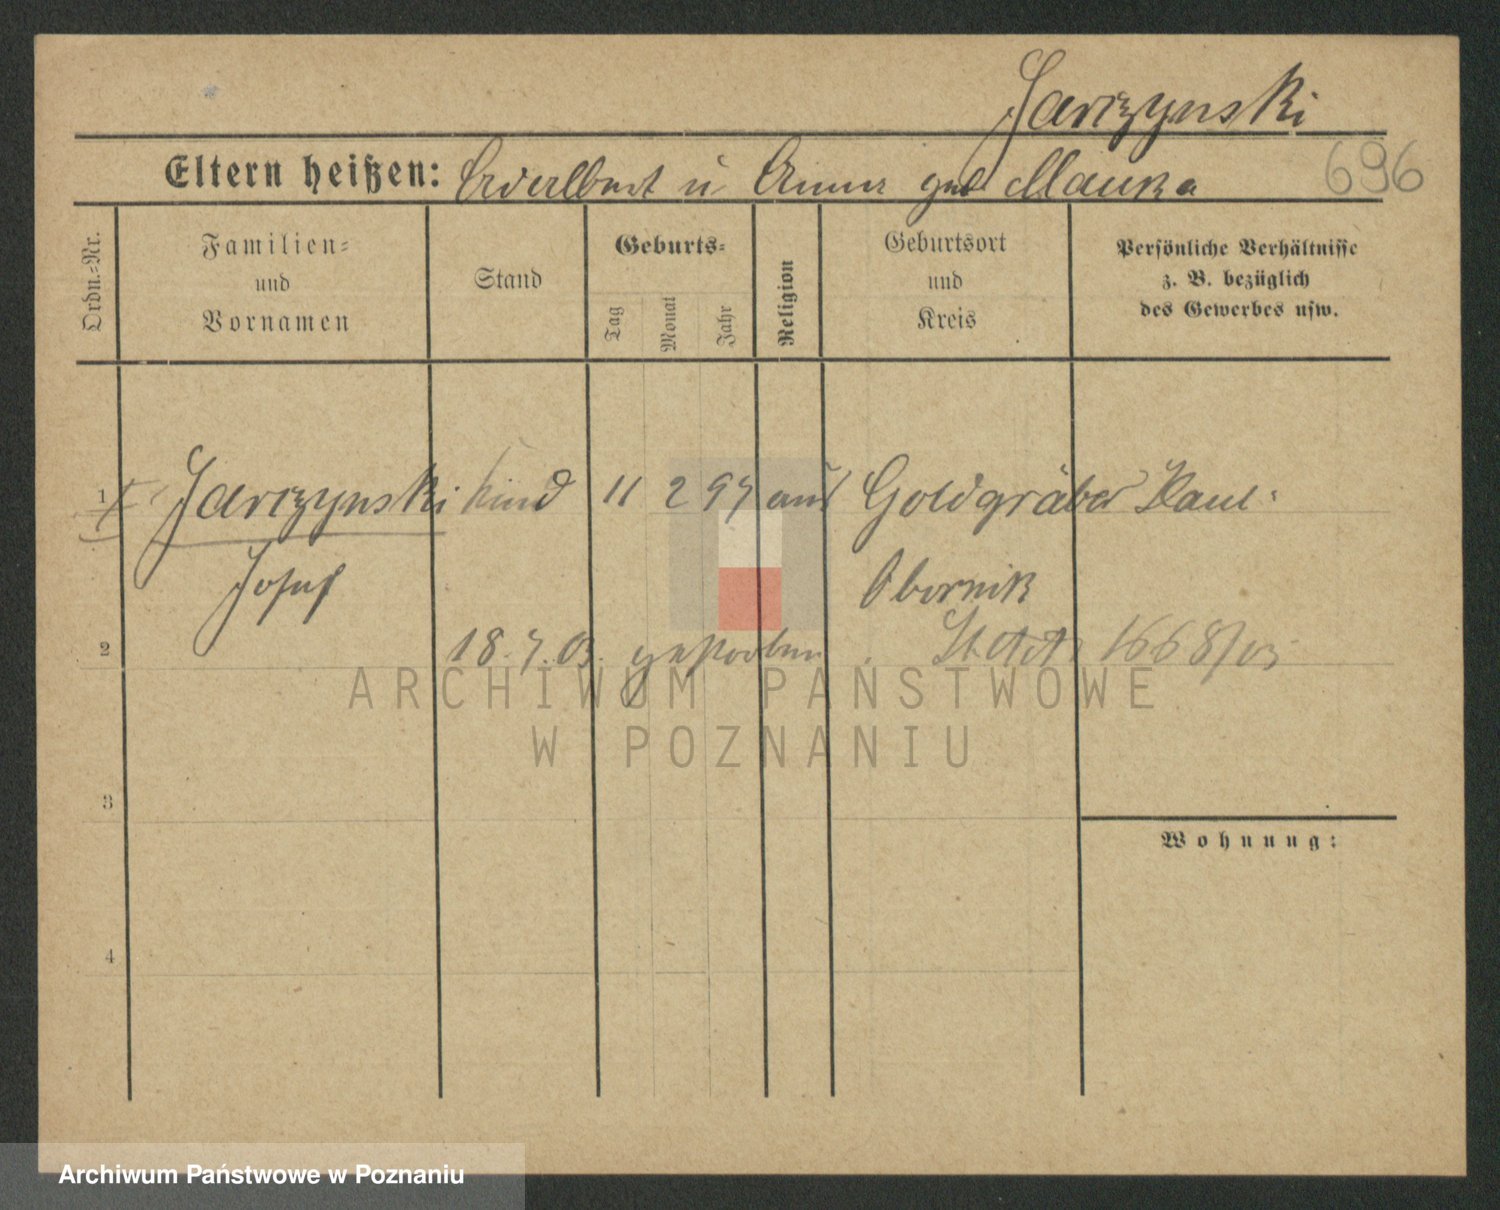 Jarczynski
696
Eltern heißen: Adalbert u Anna geb Mauka
Ordn.=Nr.
Familien=
und
Vornamen
Stand
Geburts=
Tag
Monat
Jahr
Religion
Geburtsort
und
Kreis
Persönliche Verhältnisse
z. B. bezüglich
des Gewerbes usw.
1 Jarczynski Kind 11 2 97 Goldgräber
Josef Obornik
2 18.7.03. gestorben 1668/03
ARCHIWUM PAŃSTWOWE
W POZNANIU
3
Wohnung:
4
Archiwum Państwowe w Poznaniu